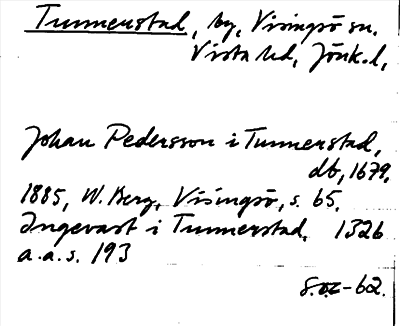 Tunnerstad, by, Visingsö sn.
Vista hd, Jönk.l,
Johan Pedersson i Tunnerstad,
db, 1679,
1885, W. Berg, Visingsö, s. 65.
Ingevast i Tunnerstad, 1326
a.a.s. 193
-62.